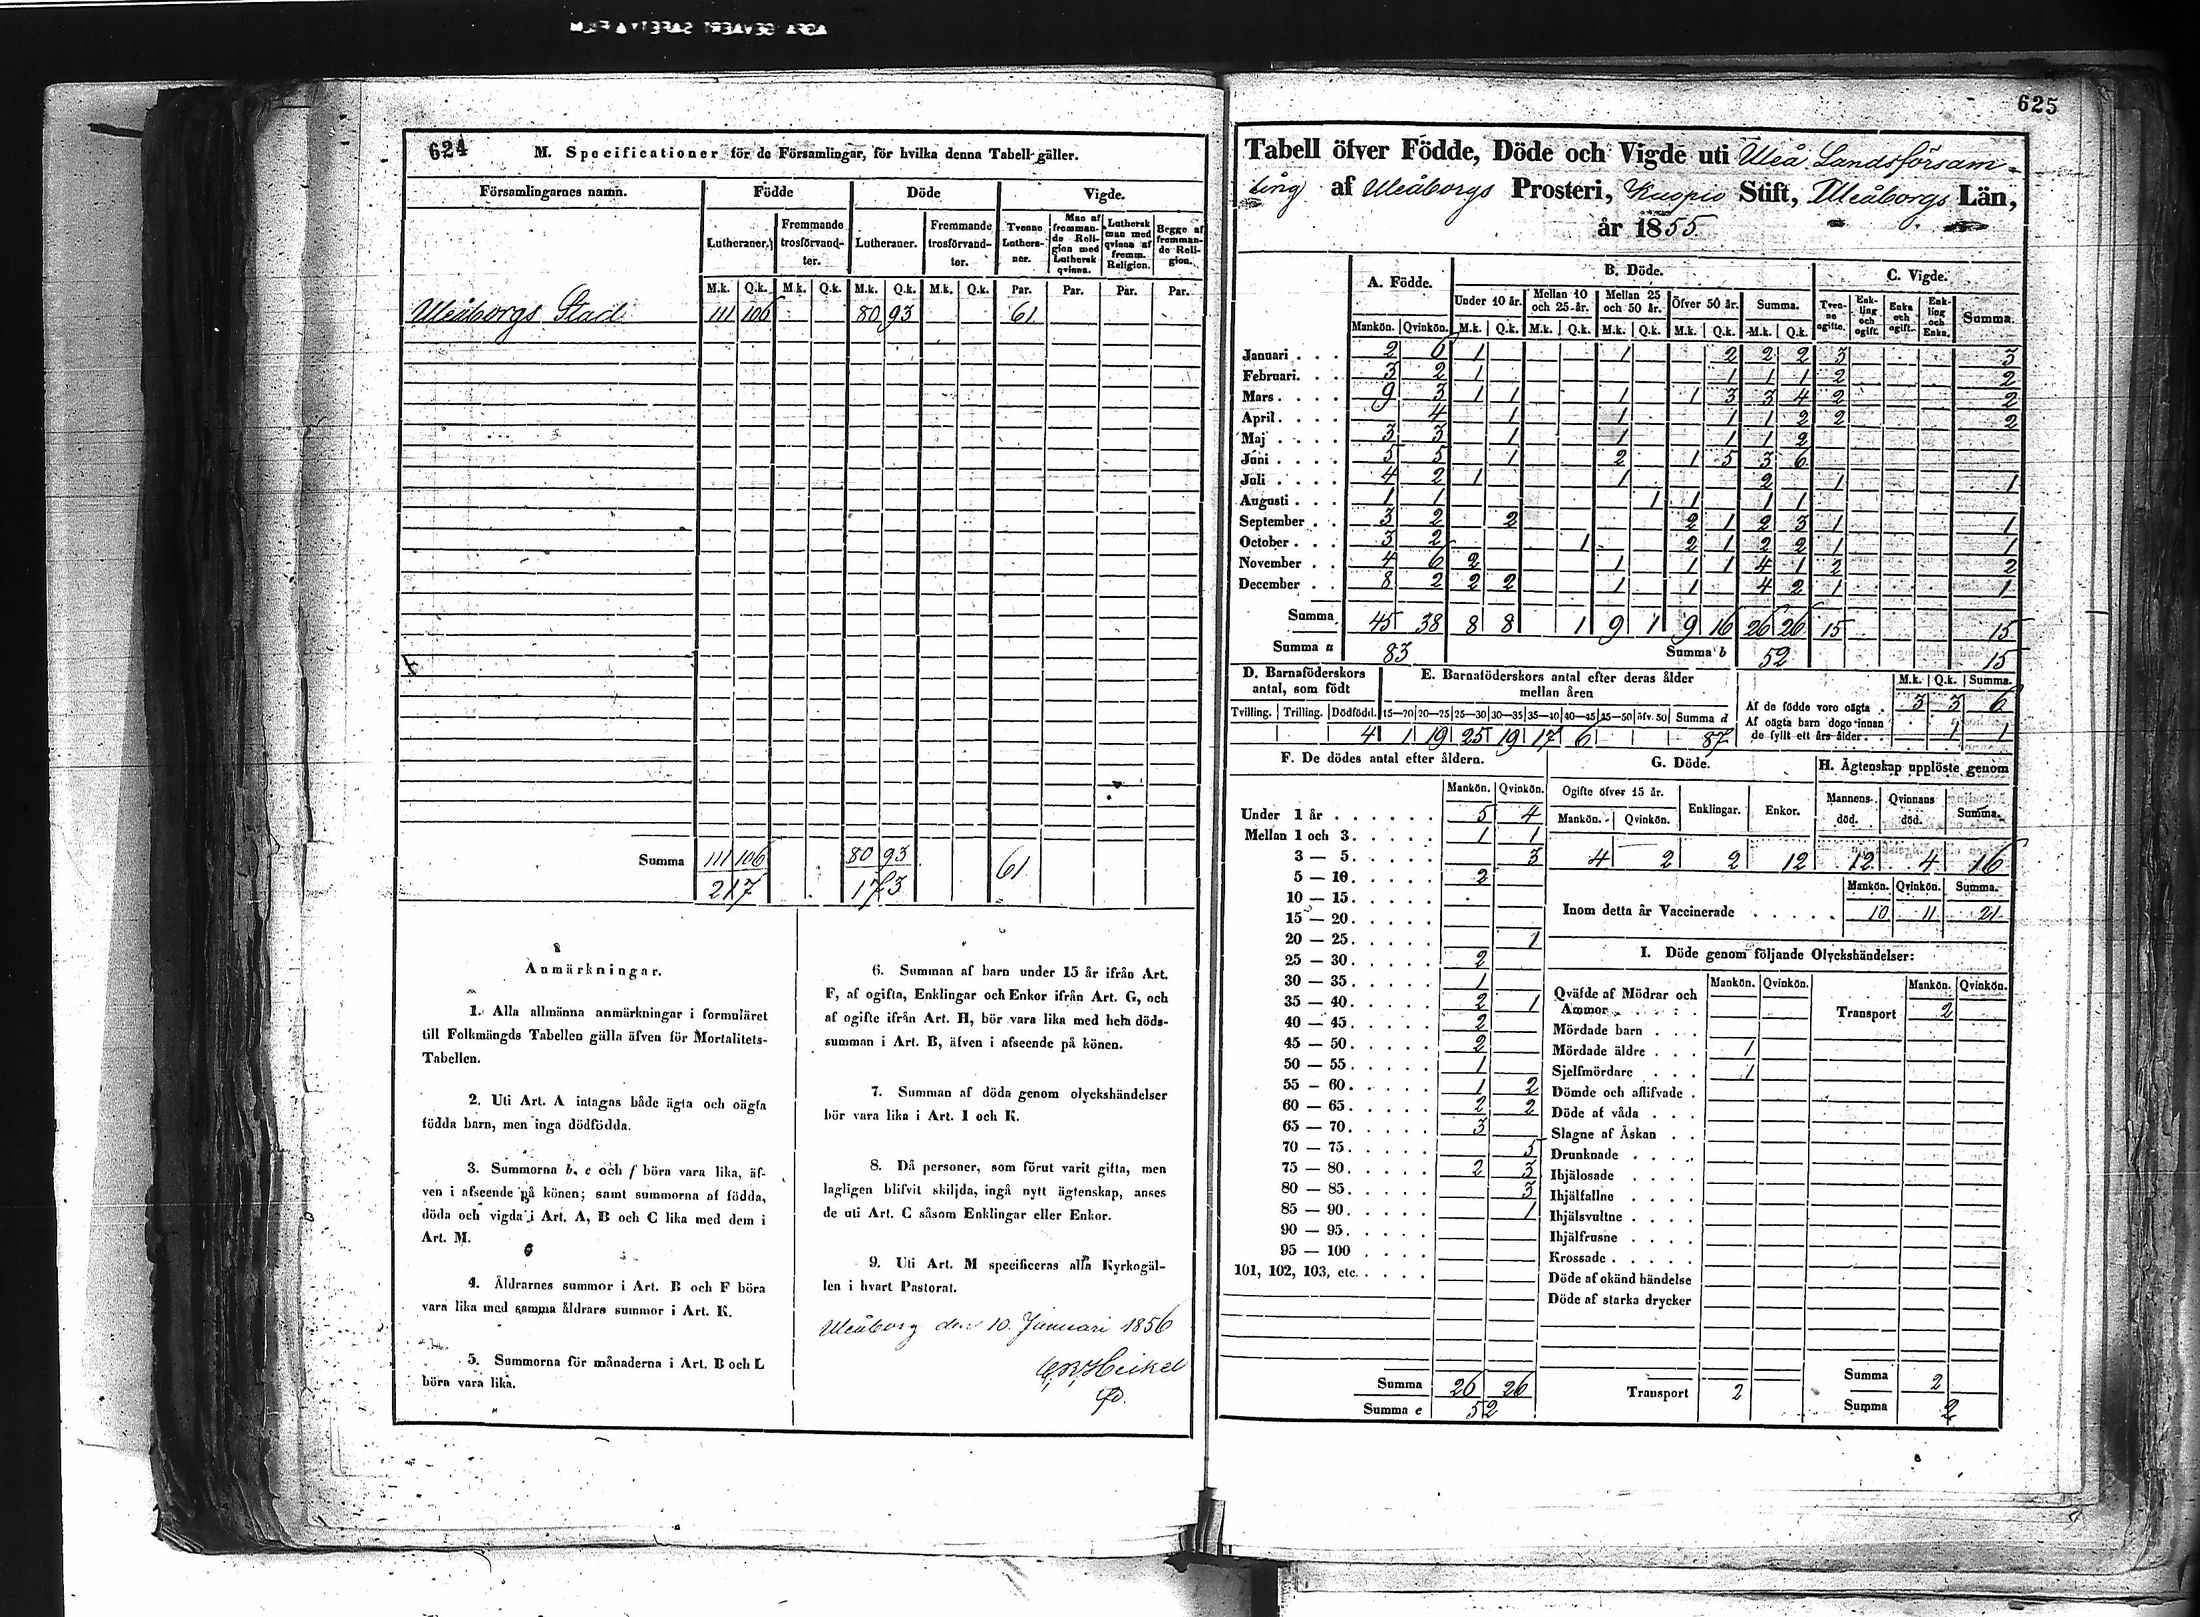 624
M. Specificationer för de Församlingar, för hvilka denna Tabell gäller.
Församlingarnes namn. Födde Döde Vigde.
Lutheraner. Fremmande trosförvandter. Lutheraner. Fremmande trosförvandter. Tvenne Lutheraner. Man af fremmande Religion med Luthersk qvinna. Luthersk man med qvinna af fremm. Religion. Begge af fremmande Religion.
M.k. Q.k. M.k. Q.k. M.k. Q.k. M.k. Q.k. Par. Par. Par. Par.
Uleåborgs Stad 111 106 80 93 61
Summa 111 106 80 93 61
217 173
Anmärkningar.
1. Alla allmänna anmärkningar i formuläret
till Folkmängds Tabellen gälla äfven för Mortalitets-
Tabellen.
2. Uti Art. A intagas både ägta och oägta
födda barn, men inga dödfödda.
3. Summorna b, e och f böra vara lika, äf-
ven i afseende på könen; samt summorna af födda,
döda och vigda i Art. A, B och C lika med dem i
Art. M.
4. Åldrarnes summor i Art. B och F böra
vara lika med samma åldrars summor i Art. K.
5. Summorna för månaderna i Art. B och L
böra vara lika.
6. Summan af barn under 15 år ifrån Art.
F, af ogifta, Enklingar och Enkor ifrån Art. G, och
af ogifte ifrån Art. H, bör vara lika med hela döds-
summan i Art. B, äfven i afseende på könen.
7. Summan af döda genom olyckshändelser
bör vara lika i Art. I och K.
8. Då personer, som förut varit gifta, men
lagligen blifvit skiljda, ingå nytt ägtenskap, anses
de uti Art. C såsom Enklingar eller Enkor.
9. Uti Art. M specificeras alla Kyrkogäl-
len i hvart Pastorat.
Uleåborg den 10. Januari 1856
Heikel
625
Tabell öfver Födde, Döde och Vigde uti Uleå Landsförsam-
ling af Uleåborgs Prosteri, Kuopio Stift, Uleåborgs Län,
år 1855.
A. Födde. B. Döde. C. Vigde.
Under 10 år. Mellan 10 och 25 år. Mellan 25 och 50 år. Öfver 50 år. Summa. Tvenne ogifte. Enkling och ogift. Enka och ogift. Enkling och Enka. Summa.
Mankön. Qvinkön. M.k. Q.k. M.k. Q.k. M.k. Q.k. M.k. Q.k. M.k. Q.k.
Januari 2 6 1 1 2 2 2 3 3
Februari 3 2 1 1 1 1 2 2
Mars 9 3 1 1 1 1 3 3 4 2 2
April 4 1 1 1 1 2 2 2
Maj 3 3 1 1 1 1 2
Juni 5 5 1 2 1 5 3 6
Juli 4 2 1 1 2 1 1
Augusti 1 1 1 1 1 1
September 3 2 2 2 1 2 3 1 1
October 3 2 1 2 1 2 2 1 1
November 4 6 2 1 1 1 4 1 2 2
December 8 2 2 2 1 1 4 2 1 1
Summa 45 38 8 8 1 9 1 9 16 26 26 15 15
Summa a 83 Summa b 52 15
D. Barnaföderskors antal, som född
E. Barnaföderskors antal efter deras ålder mellan åren
M.k. Q.k. Summa.
Tvilling. Trilling. Dödfödd. 15—20 20—25 25—30 30—35 35—40 40—45 45—50 öfv. 50 Summa d
4 1 19 25 19 17 6 87
Af de födde voro oägta 3 3 6
Af oägta barn dogo innan
de fyllt ett års ålder 1 1
F. De dödes antal efter åldern.
Mankön. Qvinkön.
Under 1 år 5 4
Mellan 1 och 3 1 1
3 — 5 3
5 — 10 2
10 — 15
15 — 20
20 — 25 1
25 — 30 2
30 — 35 1
35 — 40 2 1
40 — 45 2
45 — 50 2
50 — 55 1
55 — 60 1 2
60 — 65 2 2
65 — 70 3
70 — 75 5
75 — 80 2 3
80 — 85 3
85 — 90 1
90 — 95
95 — 100
101, 102, 103, etc.
Summa 26 26
Summa e 52
G. Döde.
Ogifte öfver 15 år. Enklingar. Enkor.
Mankön. Qvinkön.
4 2 2 12
H. Ägtenskap upplöste genom
Mannens död. Qvinnans död. Summa.
12 4 16
Mankön. Qvinkön. Summa.
Inom detta år Vaccinerade 10 11 21
I. Döde genom följande Olyckshändelser:
Mankön. Qvinkön. Mankön. Qvinkön.
Qväfde af Mödrar och
Ammor
Transport 2
Mördade barn
Mördade äldre 1
Sjelfmördare 1
Dömde och aflifvade
Döde af våda
Slagne af Åskan
Drunknade
Ihjälosade
Ihjälfallne
Ihjälsvultne
Ihjälfrusne
Krossade
Döde af okänd händelse
Döde af starka drycker
Summa 2
Transport 2 Summa 2